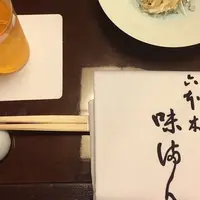 六本木
味満ん